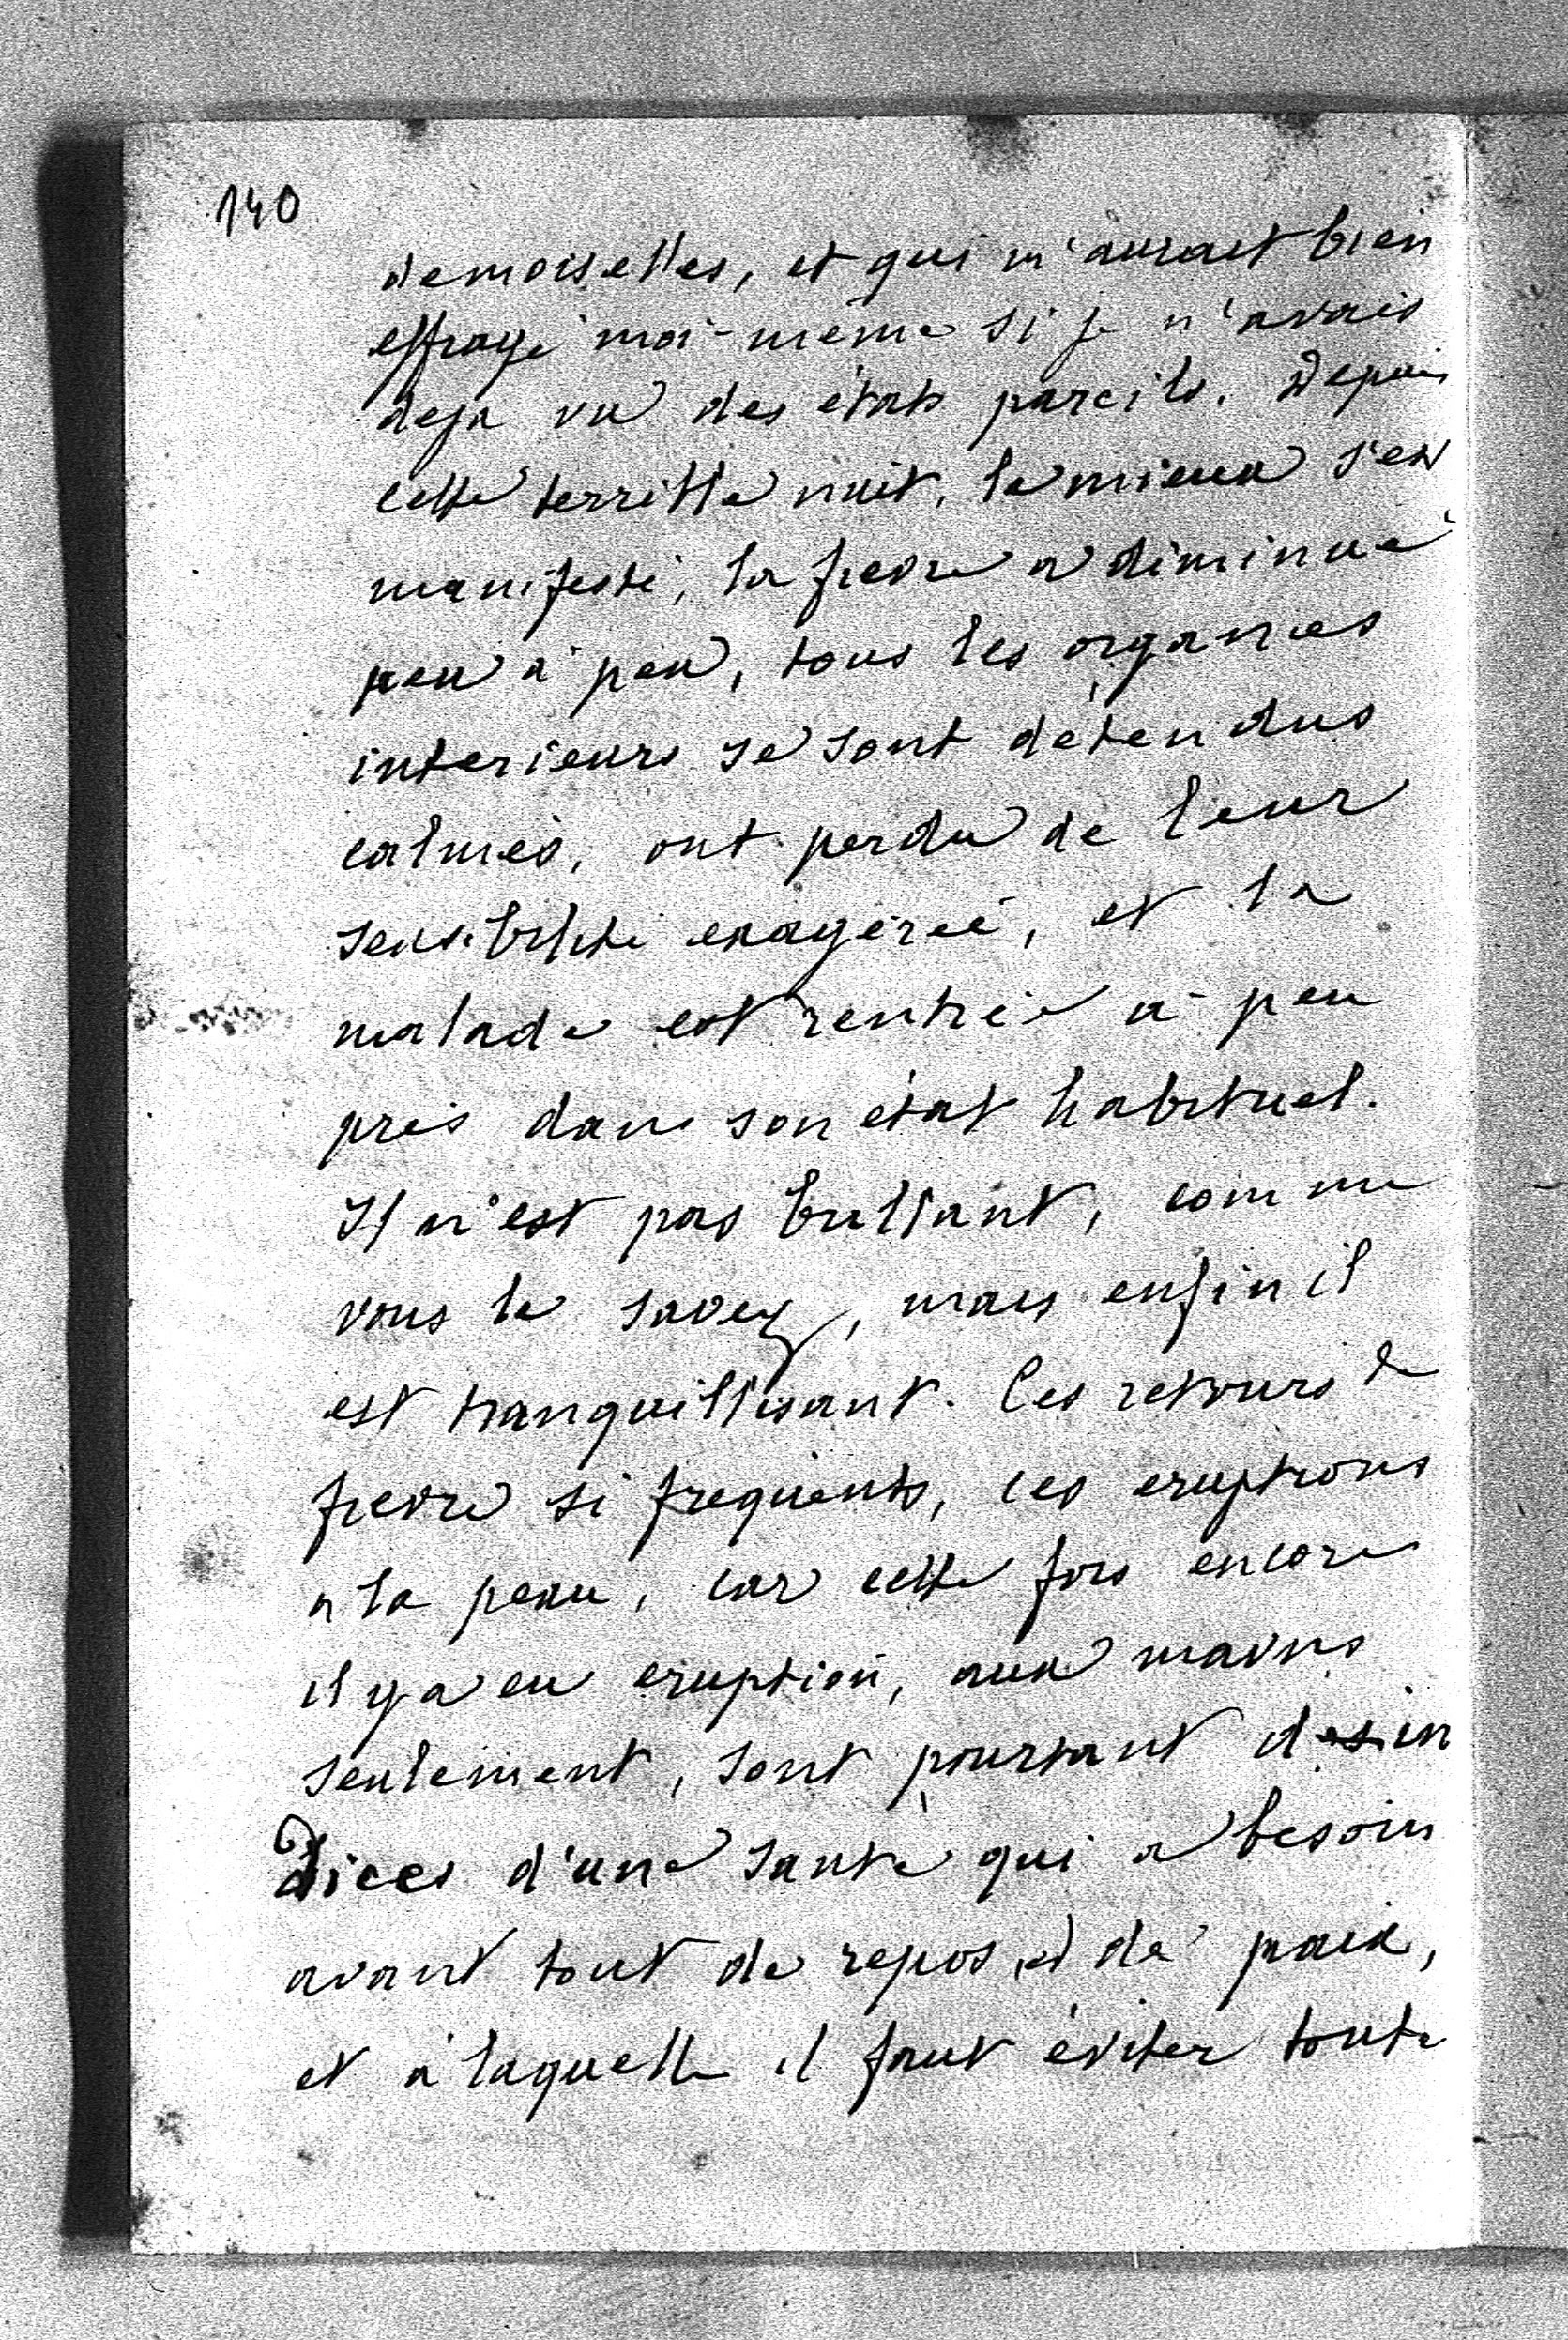 140
demoiselles, et qui m'aurait bien
effrayé moi-même si je n'avais
deja vu des états pareils. Depuis
cette terrible nuit, le mieux s'est
manifesté, la fievre a diminué
peu à peu, tous les organes
interieurs se sont détendus
calmés, ont perdu de leur
sensibilité exagérée, et la
malade est rentrée à peu
près dans son état habituel.
Il n'est pas brillant, comme
vous le savez, mais enfin il
est tranquillisant. Ces retours de
fievre si frequents, ces eruptions
a la peau, car cette fois encore
il y a eu eruption, aux mains
seulement, sont pourtant des in
dices d'une santé qui a besoin
avant tout de repos et de paix,
et à laquelle il faut éviter toute